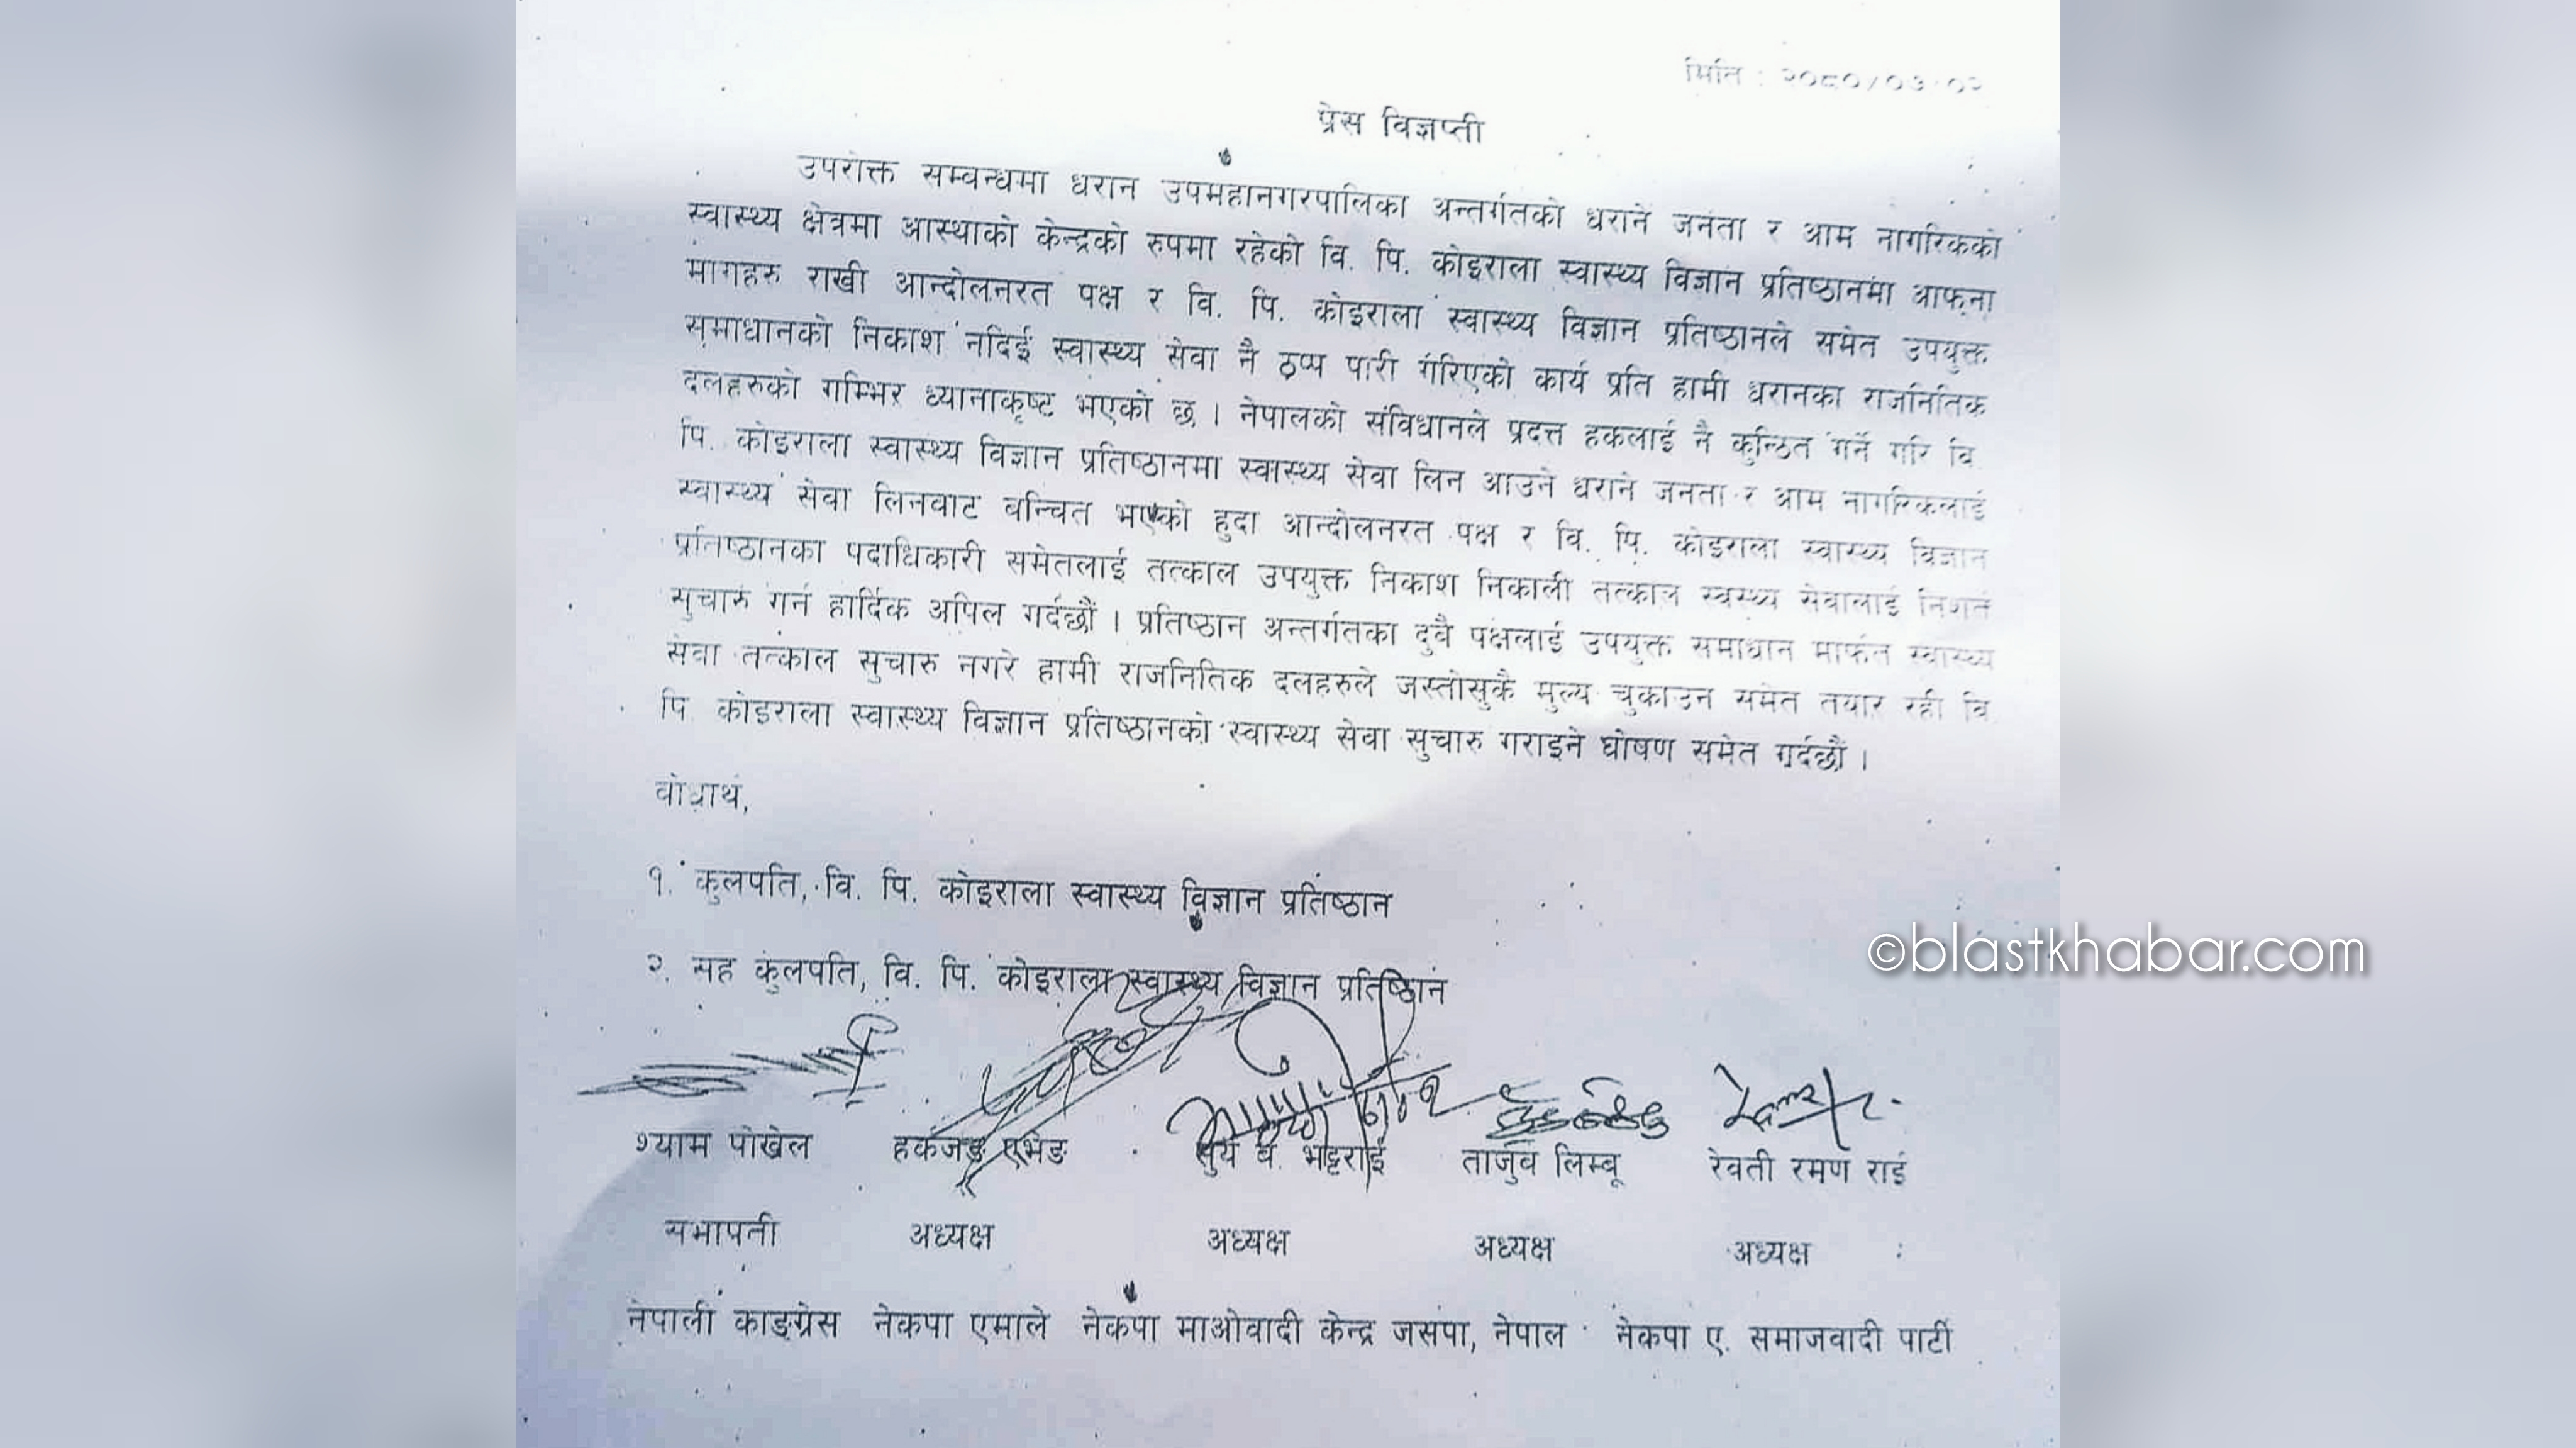 मिति : २०८०/०७/०२
प्रेस विज्ञप्ती
उपरोक्त सम्वन्धमा धरान उपमहानगरपालिका अन्तर्गतको धराने जनता र आम नागरिकको
स्वास्थ्य क्षेत्रमा आस्थाको केन्द्रको रुपमा रहेको वि. पि. कोइराला स्वास्थ्य विज्ञान प्रतिष्ठानमा आफ्ना
मागहरु राखी आन्दोलनरत पक्ष र वि. पि. कोइराला स्वास्थ्य विज्ञान प्रतिष्ठानले समेत उपयुक्त
समाधानको निकाश नदिई स्वास्थ्य सेवा नै ठप्प पारी गरिएको कार्य प्रति हामी धरानका राजनितिक
दलहरुको गम्भिर ध्यानाकृष्ट भएको छ । नेपालको संविधानले प्रदत्त हकलाई नै कुन्ठित गर्ने गरि वि
पि. कोइराला स्वास्थ्य विज्ञान प्रतिष्ठानमा स्वास्थ्य सेवा लिन आउने धराने जनता र आम नागरिकलाई
स्वास्थ्य सेवा लिनवाट वन्चित भएको हुदा आन्दोलनरत पक्ष र वि. पि. कोइराला स्वास्थ्य विज्ञान
प्रतिष्ठानका पदाधिकारी समेतलाई तत्काल उपयुक्त निकाश निकाली तत्काल स्वस्थ्य सेवालाई निशर्त
सुचारु गर्न हार्दिक अपिल गर्दछौं । प्रतिष्ठान अन्तर्गतका दुवै पक्षलाई उपयुक्त समाधान मार्फत स्वास्थ्य
सेवा तत्काल सुचारु नगरे हामी राजनितिक दलहरुले जस्तोसुकै मुल्य चुकाउन समेत तयार रही वि
पि. कोइराला स्वास्थ्य विज्ञान प्रतिष्ठानको स्वास्थ्य सेवा सुचारु गराइने घोषण समेत गर्दछौं ।
वोधार्थ,
१. कुलपति, वि. पि. कोइराला स्वास्थ्य विज्ञान प्रतिष्ठान
©blastkhabar.com
२. सह कुलपति, वि. पि. कोइराला स्वास्थ्य विज्ञान प्रतिष्ठान
श्याम पोखेल हर्कजङ एभेङ सुर्य ब. भट्टराई तार्जुव लिम्बू रेवती रमण राई
सभापती अध्यक्ष अध्यक्ष अध्यक्ष अध्यक्ष
नेपाली काङ्ग्रेस नेकपा एमाले नेकपा माओवादी केन्द्र जसपा, नेपाल नेकपा ए. समाजवादी पार्टी